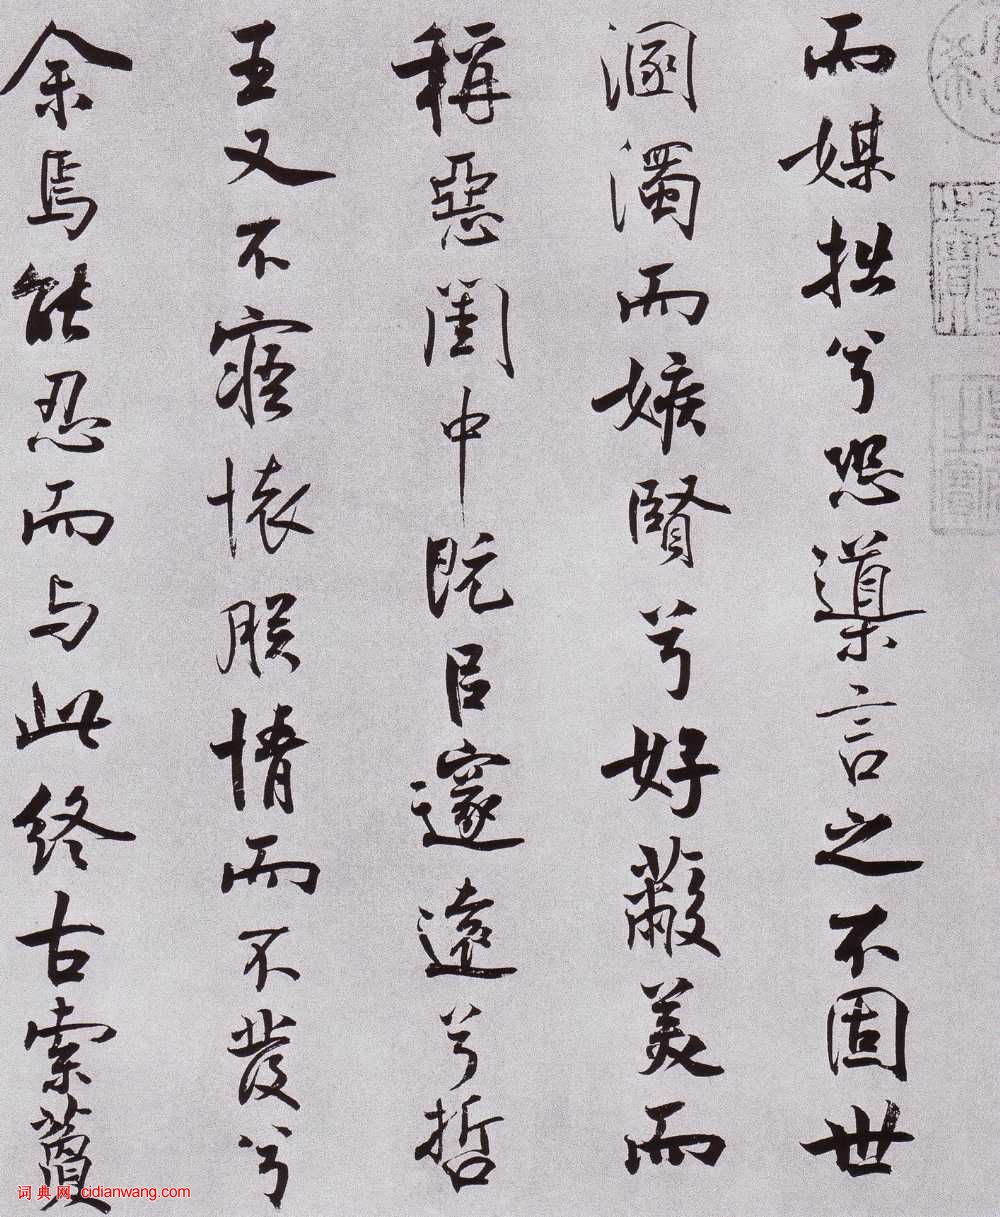 而媒拙兮恐導言之不固世
溷濁而嫉賢兮好蔽美而
稱惡閨中既已邃遠兮哲
王又不寤懷朕情而不發兮
余焉能忍而与此終古索藑
词典网 cidianwang.com